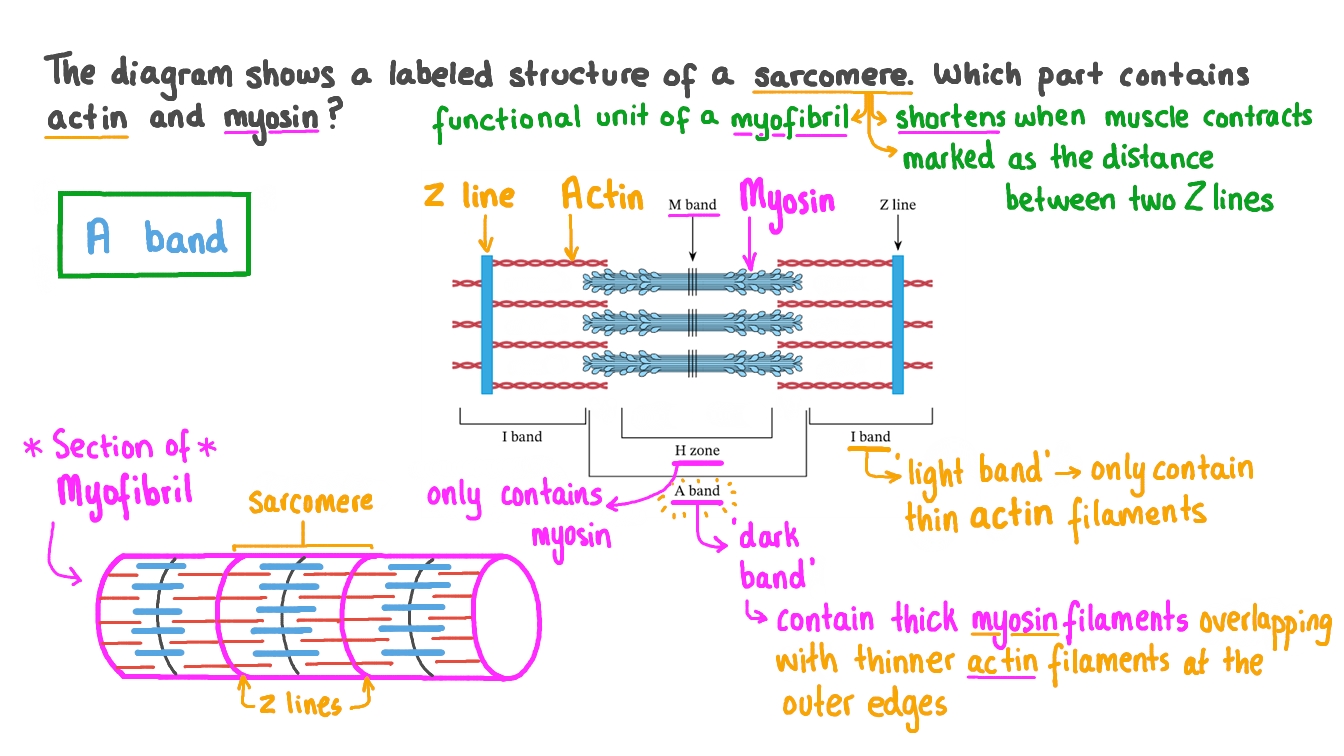 The diagram shows a labeled structure of a sarcomere. Which part contains
actin and myosin?
functional unit of a myofibril
shortens when muscle contracts
marked as the distance
between two Z lines
A band
Z line
Actin
M band
Myosin
Z line
I band
H zone
I band
A band
only contains
myosin
'light band' → only contain
thin actin filaments
'dark
band'
contain thick myosin filaments overlapping
with thinner actin filaments at the
outer edges
* Section of *
Myofibril
Sarcomere
Z lines